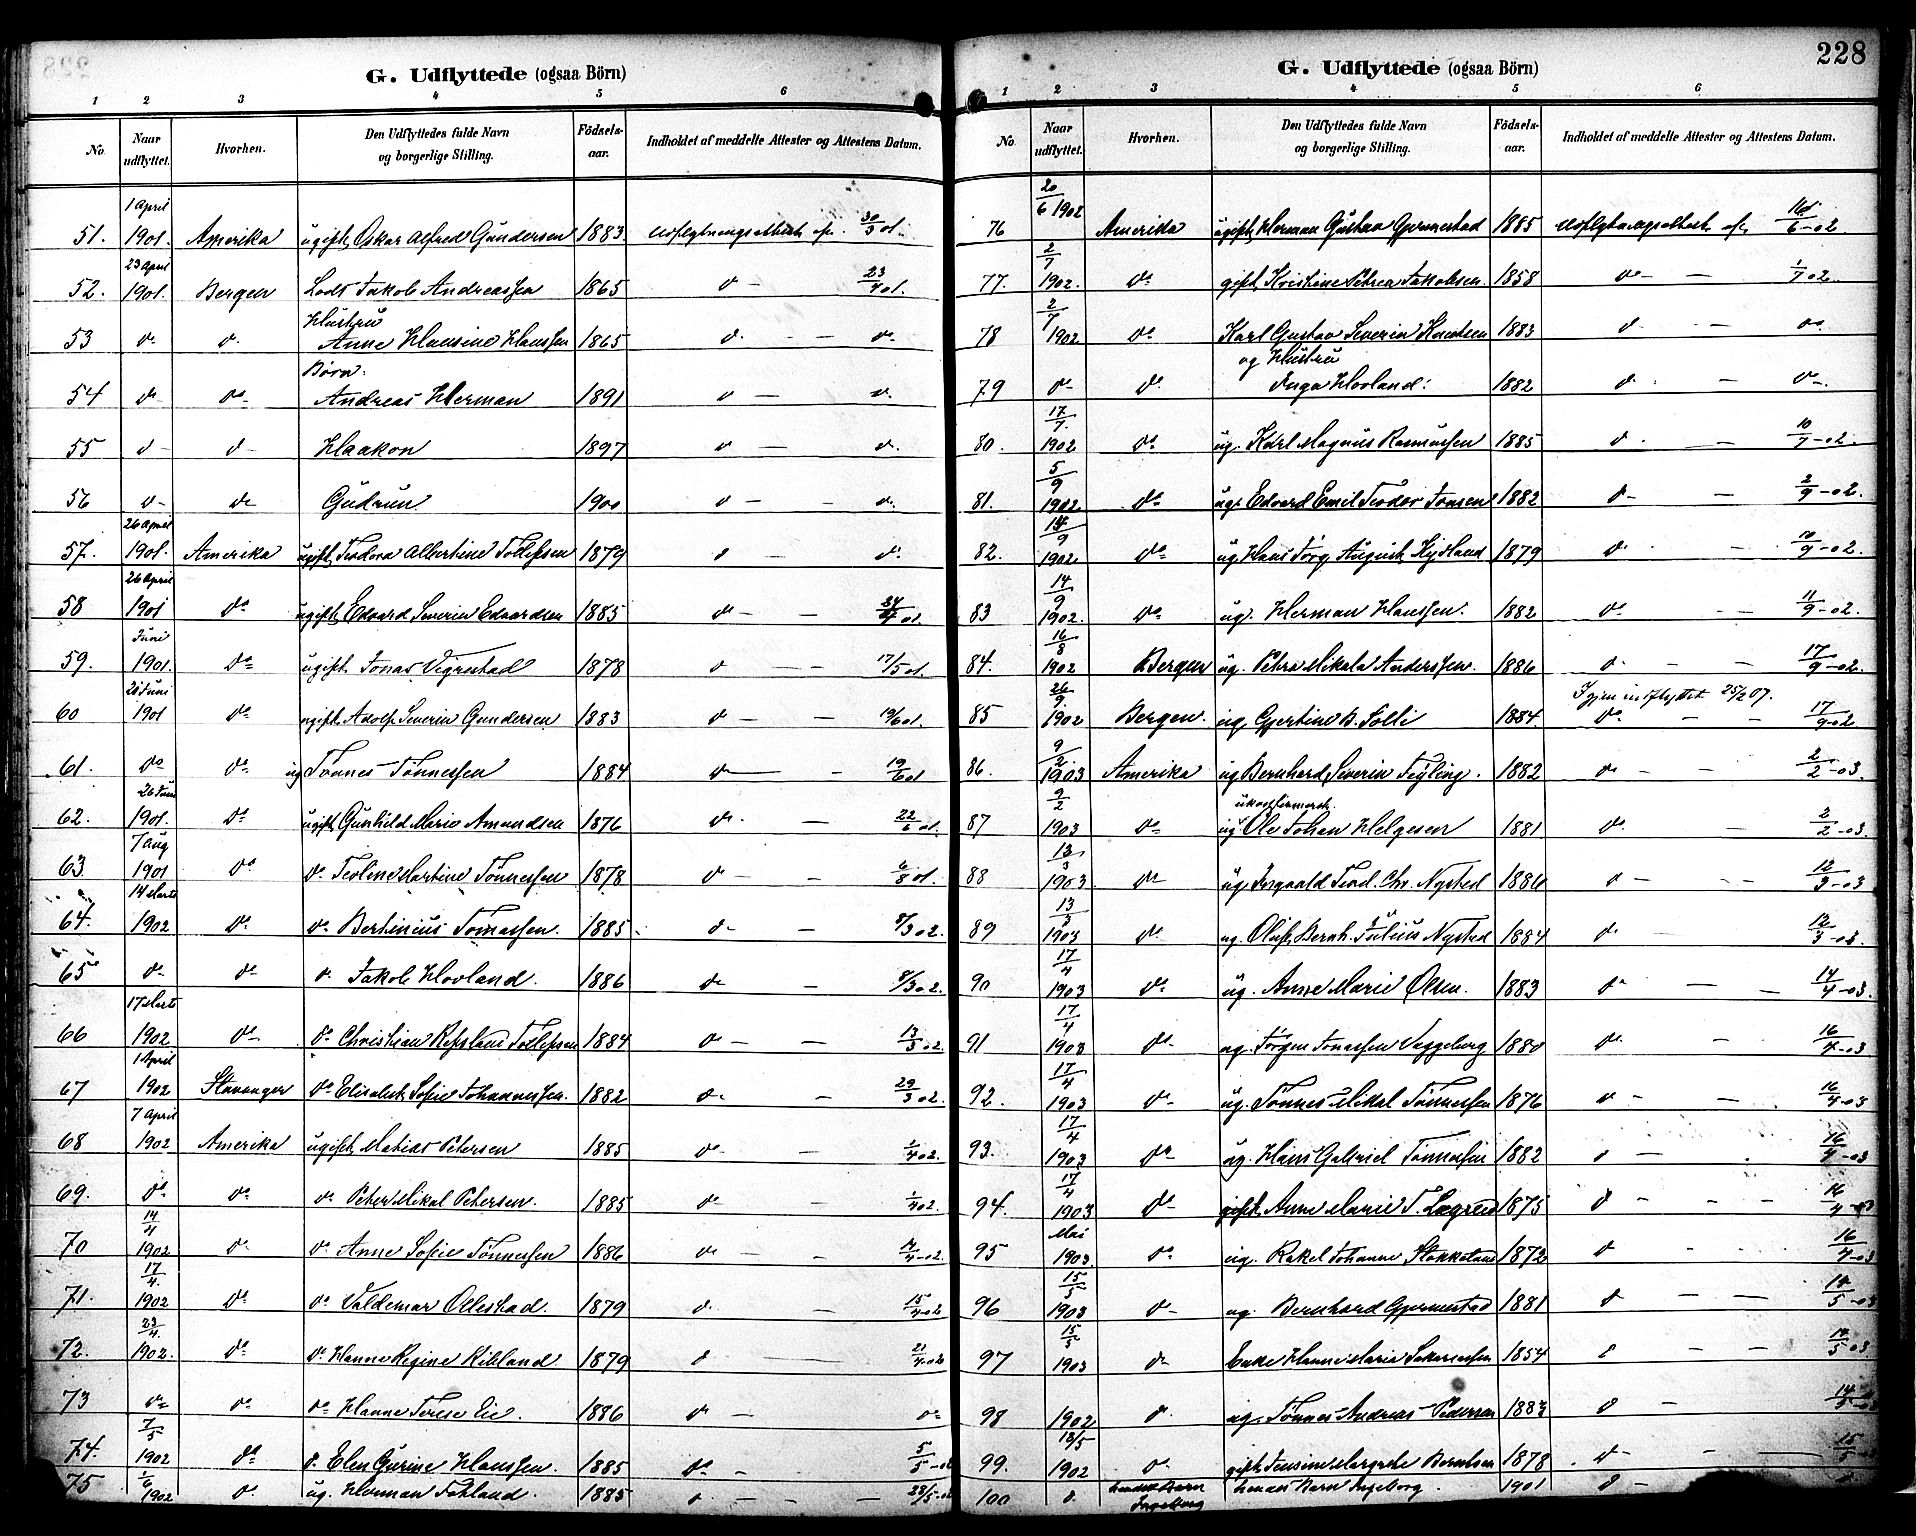 228
G. Udflyttede (ogsaa Börn)
1 2 3 4 5 6
No. Naar udflyttet. Hvorhen. Den Udflyttedes fulde Navn og borgerlige Stilling. Födsels-aar. Indholdet af meddelte Attester og Attestens Datum.
51. 1 April 1901. Amerika ugift Oskar Alfred Gundersen 1883 Udflytningsattest af 30/3 01.
52. 23 April 1901. Bergen Lods Jakob Andreassen 1865 do – 23/4 01.
Hustru
53 do do Anne Hansine Hanssen 1865 do – – do
Börn:
54 do do Andreas Herman 1891 do – do
55 do do Haakon 1897 do – do
56 do do Gudrun 1900 do – do
57. 26 April 1901. Amerika ugift Teodora Albertine Tollefsen 1879 do – do
58 26 April 1901 do ugift Edvard Severin Edvardsen 1885 do – – 24/4 01.
59. Juni 1901. do ugift Jonas Vigrestad 1878 do – 17/5 01.
60 1901 do ugift Adolf Severin Gundersen 1883 do – – 19/6 01.
61. do do ug Tönnes Tönnessen 1884 do – – 19/6 01
62. 26 Juni 1901. do ugift Gunhild Marie Amundsen 1876 do – 22/6 01.
63 7 Aug 1901 do do Teoline Martine Tönnessen 1878 do – – 6/8 01.
64. 14 Marts 1902 do do Bertinius Tomassen. 1885 do – 8/3 02.
65 do do do Jakob Hovland. 1886 do – 8/3 02.
66 17 Marts 1902 do do Christian Refsland Tollefsen 1884 do – – 13/3 02.
67 1 April 1902 Stavanger do Elisabet Sofie Johannessen. 1882 do – 29/3 02.
68 7 April 1902 Amerika ugift Matias Petersen 1885 do – 1/4 02.
69. do do do Peter Mikal Petersen. 1885 do – 1/4 02.
70 14/4 1902 do do Anne Sofie Tönnessen 1886 do – – 02.
71. 17/4. 1902 do do Valdemar Ollestad. 1879 do – 15/4 02
72. 23/4. 1902. do do Hanne Regine Kibland 1879 do – 21/4 02
73 do do do Hanne Terese Eie. 1886 do – do
74. 7/5 1902 do do Elen Gurine Hanssen. 1885 do – 5/5 – 02
75 1/6 1902 do ug. Herman 1885 do – – 28/5 – 02
G. Udflyttede (ogsaa Börn)
1 2 3 4 5 6
No. Naar udflyttet. Hvorhen. Den Udflyttedes fulde Navn og borgerlige Stilling. Födsels-aar. Indholdet af meddelte Attester og Attestens Datum.
76 20/6 1902 Amerika ugift Herman Gustav Gjermestad 1885 Udflytningsattest af 16/6 – 02
77. 2/7 1902. do gift Kristine Petrea Jakobsen. 1858 do – – 1/7 02.
78 2/7 1902 do Karl Gustav Severin Knutsen 1883 do – do
og Hustru
79 do do Inga Hovland. 1882 do – do
80. 17/7. 1902 do ug. Karl Magnus Rasmussen 1885 do – 10/7 – 02.
81. 5/9 1902 do ug. Edvard Emil Teodor Jonsen 1882 do – – 2/9 – 02.
82. 14/9 1902 do ug. Hans Jörg. August Hydland 1879 do – 10/9 – 02.
83 14/9 1902. do ug. Herman Hanssen. 1882 do – – 11/9 – 02.
84. 16/8 1902 Bergen ug. Petra Mikala Anderssen. 1886 do – – 17/9 – 02.
Igjen indflyttet 25/2 07.
85 26/9. 1902 Bergen. ug. Gjertine B. Solli 1884. do – – 17/9 – 02
86. 9/2. 1903 Amerika ug Bernhard Severin Tegling. 1882 do – – 2/2 – 03.
ukonfirmert.
87 9/2 1903 do ug. Ole Johan Helgesen 1881 do – – 2/2 – 03.
88 13/3 1903 do ug. Ingvald Teod. Chr. Nysted 1886 do – – 12/3 – 03
89 13/3 1903 do ug. Oluf Bernh. Julius Nysted 1884 do – 12/3 – 03.
90 17/4 1903 do ug. Anne Marie Olsen. 1883 do – – 14/4 – 03.
91 17/4 1903 do ug. Jörgen Jonassen Veggeberg 1880 do – 16/4 – 03
92. 17/4 1903 do ug. Tönnes Mikal Tönnessen 1876 do – – 16/4 – 03
93. 17/4 1903 do ug. Hans Gabriel Tönnessen 1882 do – 16/4 – 03
94. 17/4 1903 do gift Anne Marie T. Lægreid 1875 do – – 16/4 – 03
95 Mai 1903. do ug. Rakel Johanne Stokkeland 1872 do – – 16/4 – 03
96 15/5 1903 do ug. Bernhard Gjermestad 1881 do – – 14/5 – 03
97 15/5 1903 do Enke Hanne Maria Sakariassen 1854 do – – 14/5 03.
98 1902 do ug. Tönnes Andreas Pedersen 1883 do – – 14/5 – 03
99. 18/5 1902 do gift Jensine Margrete Berntsen 1878 do – – 15/5 – 03
100 do hendes Barn Ingeborg hendes Barn Ingeborg. 1901 do – – do